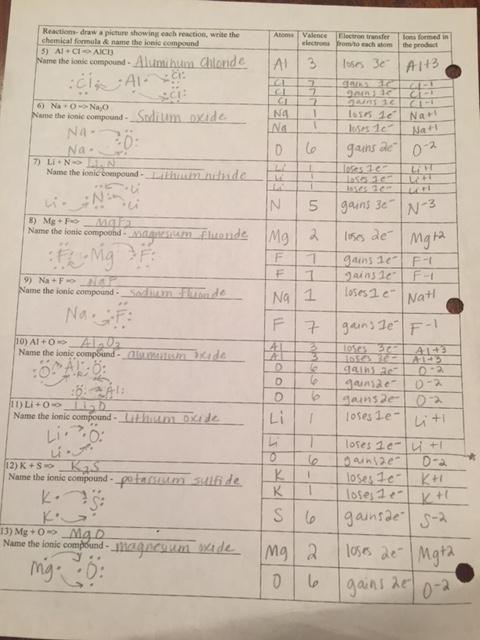 Reactions- draw a picture showing each reaction, write the chemical formula & name the ionic compound
Atoms
Valence electrons
Electron transfer from/to each atom
Ions formed in the product
5) Al + Cl => AlCl3
Name the ionic compound - Aluminum Chloride
:Cl Al Cl:
Cl:
Al 3 loses 3e- Al+3
Cl 7 gains 1e- Cl-1
Cl 7 gains 1e- Cl-1
Cl 7 gains 1e- Cl-1
6) Na + O => Na2O
Name the ionic compound - Sodium oxide
Na O:
Na
Na 1 loses 1e- Na+1
Na 1 loses 1e- Na+1
O 6 gains 2e- O-2
7) Li + N => Li3N
Name the ionic compound - Lithium nitride
Li N Li
Li
Li 1 loses 1e- Li+1
Li 1 loses 1e- Li+1
Li 1 loses 1e- Li+1
N 5 gains 3e- N-3
8) Mg + F => MgF2
Name the ionic compound - magnesium fluoride
:F Mg F:
Mg 2 loses 2e- Mg+2
F 7 gains 1e- F-1
F 7 gains 1e- F-1
9) Na + F => NaF
Name the ionic compound - sodium fluoride
Na F:
Na 1 loses 1e- Na+1
F 7 gains 1e- F-1
10) Al + O => Al2O3
Name the ionic compound - aluminum oxide
:O Al O:
:O Al:
Al 3 loses 3e- Al+3
Al 3 loses 3e- Al+3
O 6 gains 2e- O-2
O 6 gains 2e- O-2
O 6 gains 2e- O-2
11) Li + O => Li2O
Name the ionic compound - Lithium oxide
Li O:
Li
Li 1 loses 1e- Li+1
Li 1 loses 1e- Li+1
O 6 gains 2e- O-2
12) K + S => K2S
Name the ionic compound - potassium sulfide
K S
K
K 1 loses 1e- K+1
K 1 loses 1e- K+1
S 6 gains 2e- S-2
13) Mg + O => MgO
Name the ionic compound - magnesium oxide
Mg O:
Mg 2 loses 2e- Mg+2
O 6 gains 2e- O-2